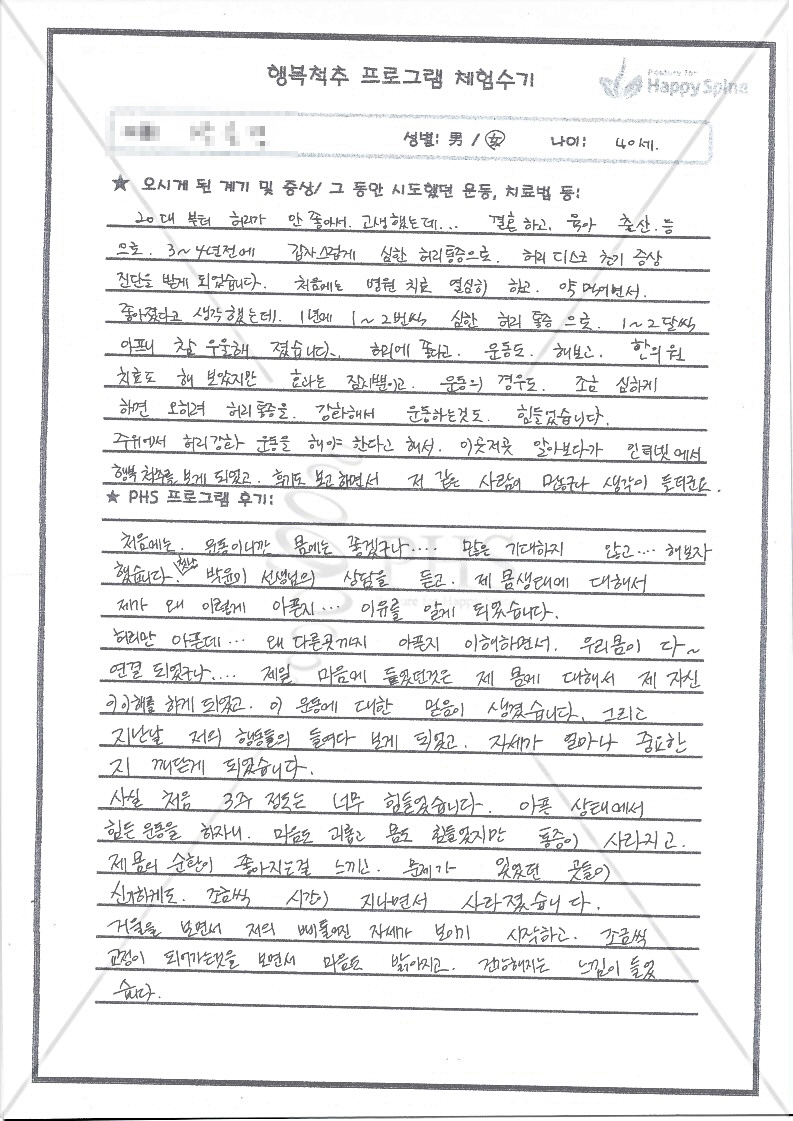 행복척추 프로그램 체험수기
Posture for
HappySpine
성별: 男 / 女 나이: 40세.
★ 오시게 된 계기 및 증상/ 그 동안 시도했던 운동, 치료법 등:
20대 부터 허리가 안 좋아서. 고생했는데... 결혼하고, 육아 출산. 등
으로. 3~4년전에 갑자스럽게 심한 허리통증으로. 허리 디스크 초기 증상
진단을 받게 되었습니다. 처음에는 병원 치료 열심히 하고. 약 먹어면서.
좋아졌다고 생각했는데. 1년에 1~2번씩 심한 허리 통증 으로. 1~2달씩
아프니 참 우울해 졌습니다. 허리에 좋다고. 운동도. 해보고. 한의원
치료도 해 보았지만 효과는 잠시뿐이고. 운동의 경우도. 조금 심하게
하면 오히려 허리통증을. 강화해서 운동하는것도. 힘들었습니다.
주위에서 허리강화 운동을 해야 한다고 해서. 이웃저곳 알아보다가 인터넷에서
행복척추를 보게 되었고. 후기도 보고 하면서 저 같은 사람이 많구나 생각이 들더군요.
★ PHS 프로그램 후기:
처음에는. 운동이니깐 몸에는 좋겠구나.... 많은 기대하지 않고.... 해보자
했습니다. 첫날 박윤미 선생님의 상담을 듣고. 제 몸생태에 대해서
제가 왜 이렇게 아픈지... 이유를 알게 되었습니다.
허리만 아픈데... 왜 다른곳까지 아픈지 이해하면서. 우리몸이 다~
연결 되었구나.... 제일 마음에 들었던것은 제 몸에 대해서 제 자신
이 이해를 하게 되었고. 이 운동에 대한 믿음이 생겼습니다. 그리고
지난날 저의 행동들의 들여다 보게 되었고. 자세가 얼마나 중요한
지 깨닫게 되었습니다.
사실 처음 3주 정도는 너무 힘들었습니다. 아픈 상태에서
힘든 운동을 하자니. 마음도 괴롭고 몸도 힘들었지만 통증이 사라지고.
제 몸의 순환이 좋아지는걸 느끼고. 문제가 있었던 곳들이
신기하게도. 조금씩 시간이 지나면서 사라졌습니다.
거울을 보면서 저의 삐뚤어진 자세가 보이기 시작하고. 조금씩
교정이 되어가는것을 보면서 마음도 밝아지고. 건강해지는 느낌이 들었
습니다.